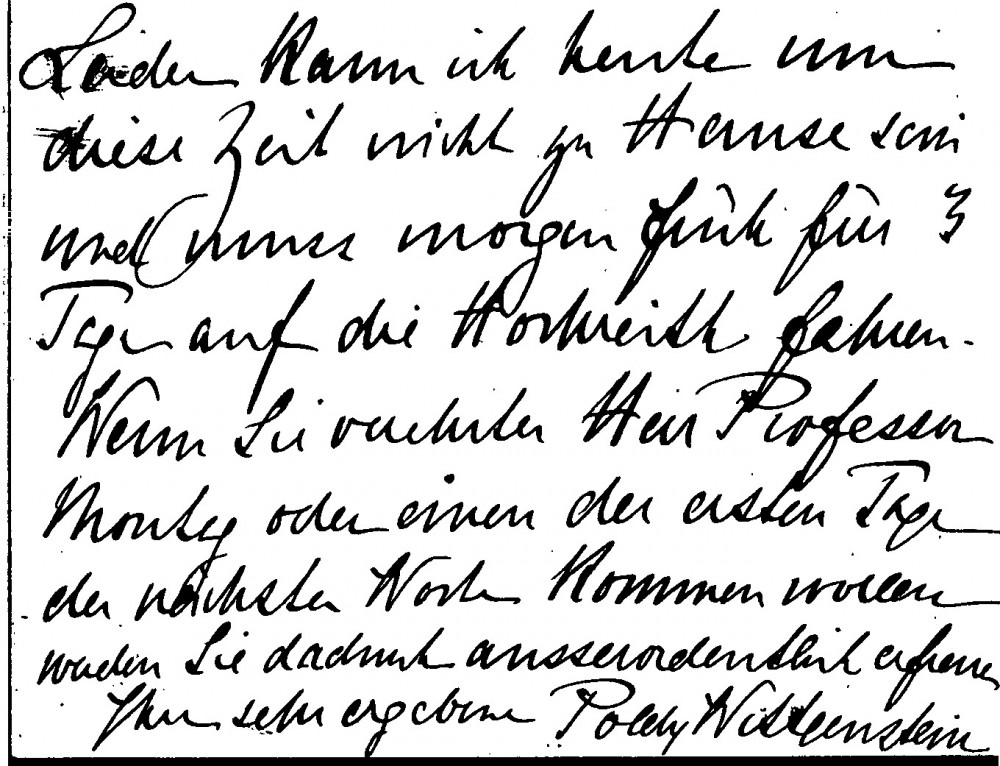 Leider kann ich heute um
diese Zeit nicht zu Hause sein
und muss morgen früh für 3
Tage auf die Hochreith fahren.
Wenn Sie verehrter Herr Professor
Montag oder einen der ersten Tage
der nächsten Woche kommen wollen
werden Sie dadurch ausserordentlich erfreuen
Ihre sehr ergebene Poldy Wittgenstein